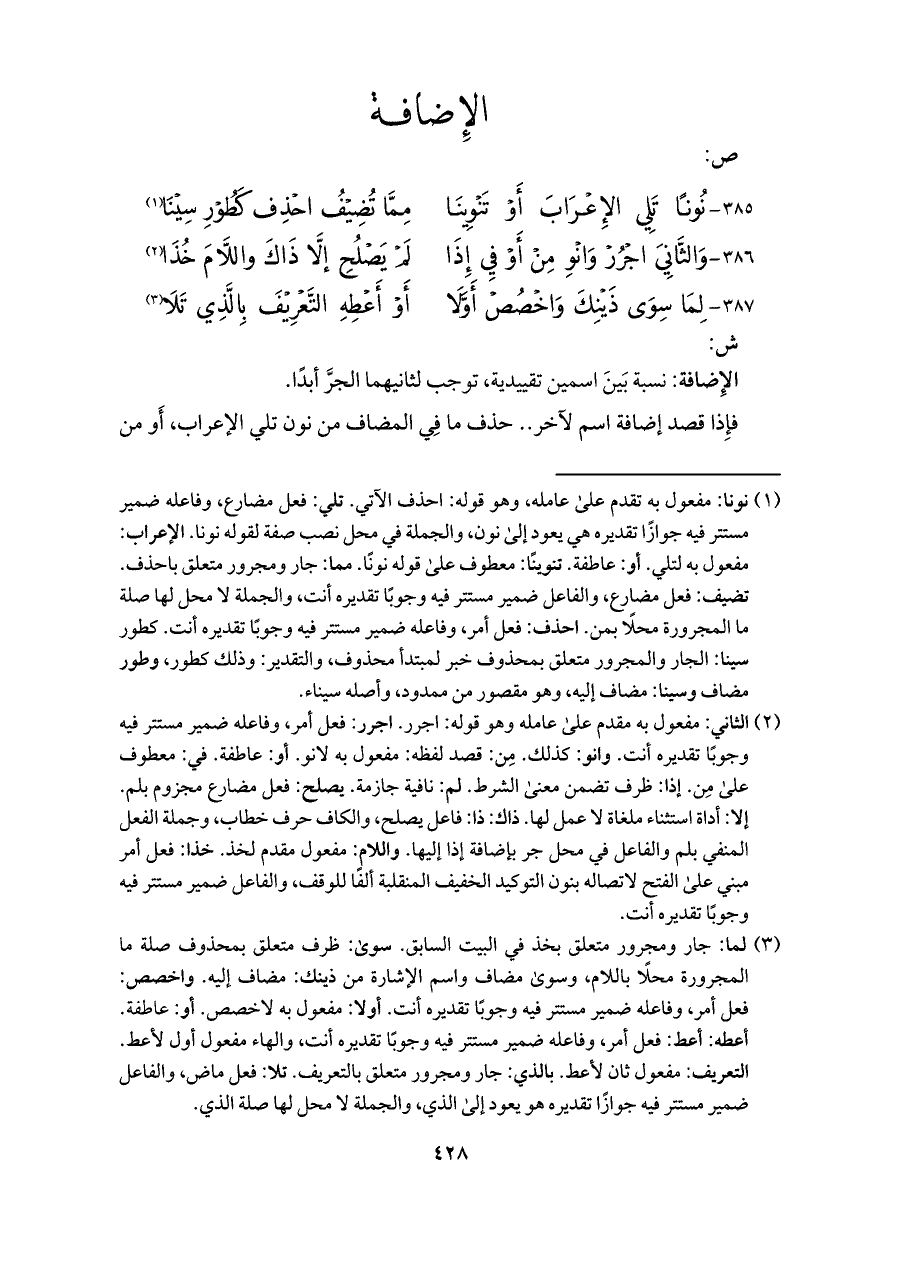 الإِضافة
ص:
٣٨٥- نُونًا تَلِي الإِعْرَابَ أَوْ تَنْوِينَا مِمَّا تُضِيْفُ احْذِف كَطُوْرِ سِيْنَا(١)
٣٨٦- وَالثَّانِيَ اجْرُرْ وَانْوِ مِنْ أَوْ فِي إِذَا لَمْ يَصْلُحِ إلَّا ذَاكَ واللَّامَ خُذَا(٢)
٣٨٧- لِمَا سِوَى ذَيْنِكَ وَاخْصُصْ أَوَّلَا أَوْ أَعْطِهِ التَّعْرِيْفَ بِالَّذِي تَلَا(٣)
ش:
الإِضافة: نسبة بَينَ اسمين تقييدية، توجب لثانيهما الجرَّ أبدًا.
فإِذا قصد إضافة اسم لآخر.. حذف ما فِي المضاف من نون تلي الإعراب، أَو من
(١) نونا: مفعول به تقدم علىٰ عامله، وهو قوله: احذف الآتي. تلي: فعل مضارع، وفاعله ضمير
مستتر فيه جوازًا تقديره هي يعود إلىٰ نون، والجملة في محل نصب صفة لقوله نونا. الإعراب:
مفعول به لتلي. أو: عاطفة. تنوينًا: معطوف علىٰ قوله نونًا. مما: جار ومجرور متعلق باحذف.
تضيف: فعل مضارع، والفاعل ضمير مستتر فيه وجوبًا تقديره أنت، والجملة لا محل لها صلة
ما المجرورة محلًا بمن. احذف: فعل أمر، وفاعله ضمير مستتر فيه وجوبًا تقديره أنت. كطور
سينا: الجار والمجرور متعلق بمحذوف خبر لمبتدأ محذوف، والتقدير: وذلك كطور، وطور
مضاف وسينا: مضاف إليه، وهو مقصور من ممدود، وأصله سيناء.
(٢) الثاني: مفعول به مقدم علىٰ عامله وهو قوله: اجرر. اجرر: فعل أمر، وفاعله ضمير مستتر فيه
وجوبًا تقديره أنت. وانو: كذلك. مِن: قصد لفظه: مفعول به لانو. أو: عاطفة. في: معطوف
علىٰ مِن. إذا: ظرف تضمن معنىٰ الشرط. لم: نافية جازمة. يصلح: فعل مضارع مجزوم بلم.
إلا: أداة استثناء ملغاة لا عمل لها. ذاك: ذا: فاعل يصلح، والكاف حرف خطاب، وجملة الفعل
المنفي بلم والفاعل في محل جر بإضافة إذا إليها. واللام: مفعول مقدم لخذ. خذا: فعل أمر
مبني علىٰ الفتح لاتصاله بنون التوكيد الخفيف المنقلبة ألفًا للوقف، والفاعل ضمير مستتر فيه
وجوبًا تقديره أنت.
(٣) لما: جار ومجرور متعلق بخذ في البيت السابق. سوىٰ: ظرف متعلق بمحذوف صلة ما
المجرورة محلًا باللام، وسوىٰ مضاف واسم الإشارة من ذينك: مضاف إليه. واخصص:
فعل أمر، وفاعله ضمير مستتر فيه وجوبًا تقديره أنت. أولا: مفعول به لاخصص. أو: عاطفة.
أعطه: أعط: فعل أمر، وفاعله ضمير مستتر فيه وجوبًا تقديره أنت، والهاء مفعول أول لأعط.
التعريف: مفعول ثان لأعط. بالذي: جار ومجرور متعلق بالتعريف. تلا: فعل ماض، والفاعل
ضمير مستتر فيه جوازًا تقديره هو يعود إلىٰ الذي، والجملة لا محل لها صلة الذي.
٤٢٨